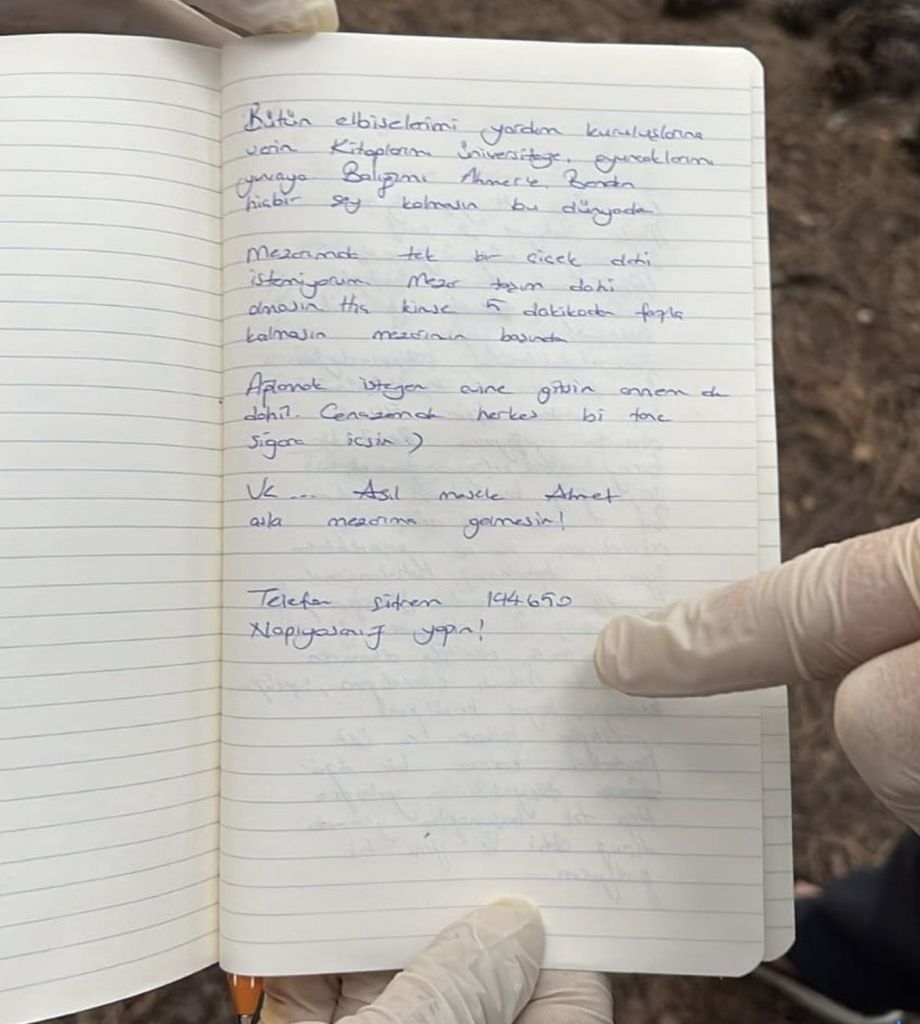 Bütün elbiselerimi yardım kuruluşlarına
verin Kitaplarım üniversiteye, oyuncaklarım
yuvaya Balığımı Ahmet'e. Benden
hiçbir şey kalmasın bu dünyada
Mezarımda tek bir çiçek dahi
istemiyorum. Mezar taşım dahi
olmasın Hiç kimse 5 dakikadan fazla
kalmasın mezarımın başında
Ağlamak isteyen evine gitsin annem de
dahil. Cenazemde herkes bi tane
sigara içsin :)
Ve ... Asıl mesele Ahmet
asla mezarıma gelmesin!
Telefon şifrem 194650
Napıyosanız yapın!